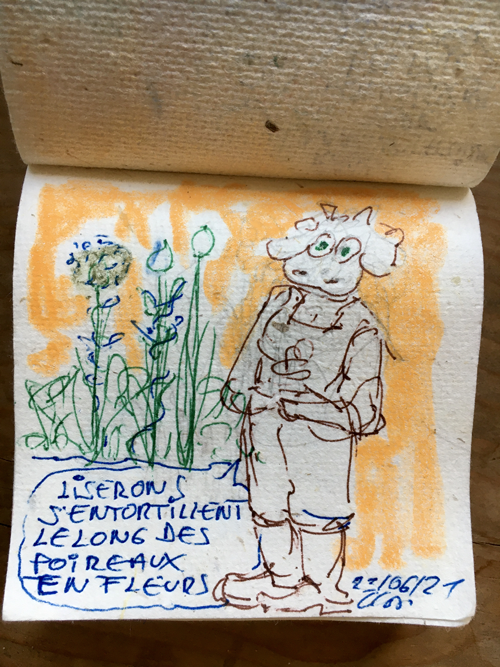 LISERONS
S'ENTORTILLENT
LE LONG DES
POIREAUX
EN FLEURS
/06/21